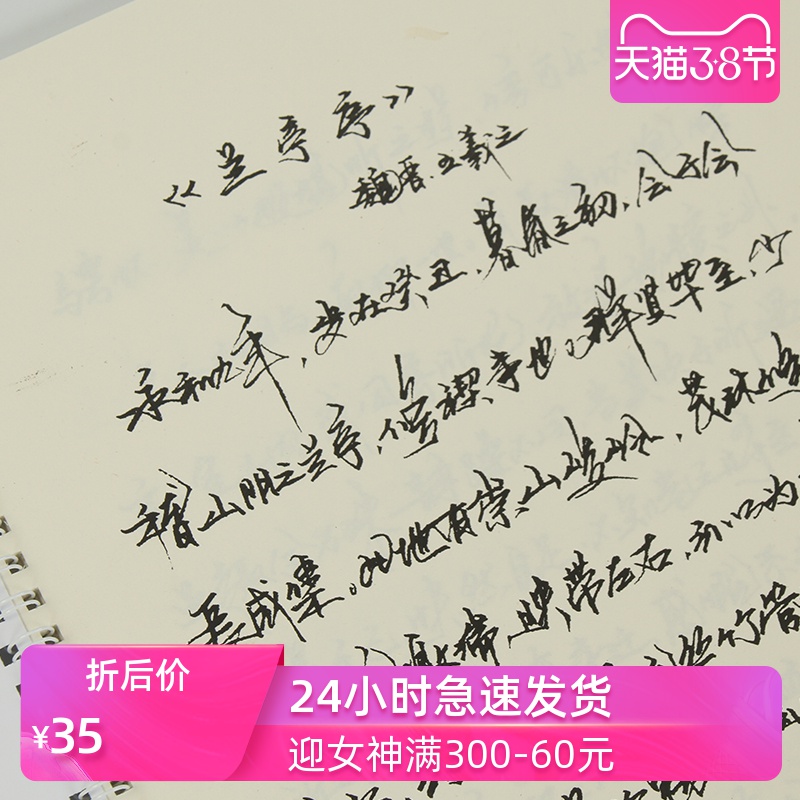 天猫3.8节
《兰亭序》
魏晋.王羲之
永和九年，岁在癸丑，暮春之初，会于会
稽山阴之兰亭，修禊事也。群贤毕至，少
长咸集。此地有崇山峻岭，茂林修
湍，映带左右，引以为
丝竹管
折后价
¥35
24小时急速发货
迎女神满300-60元